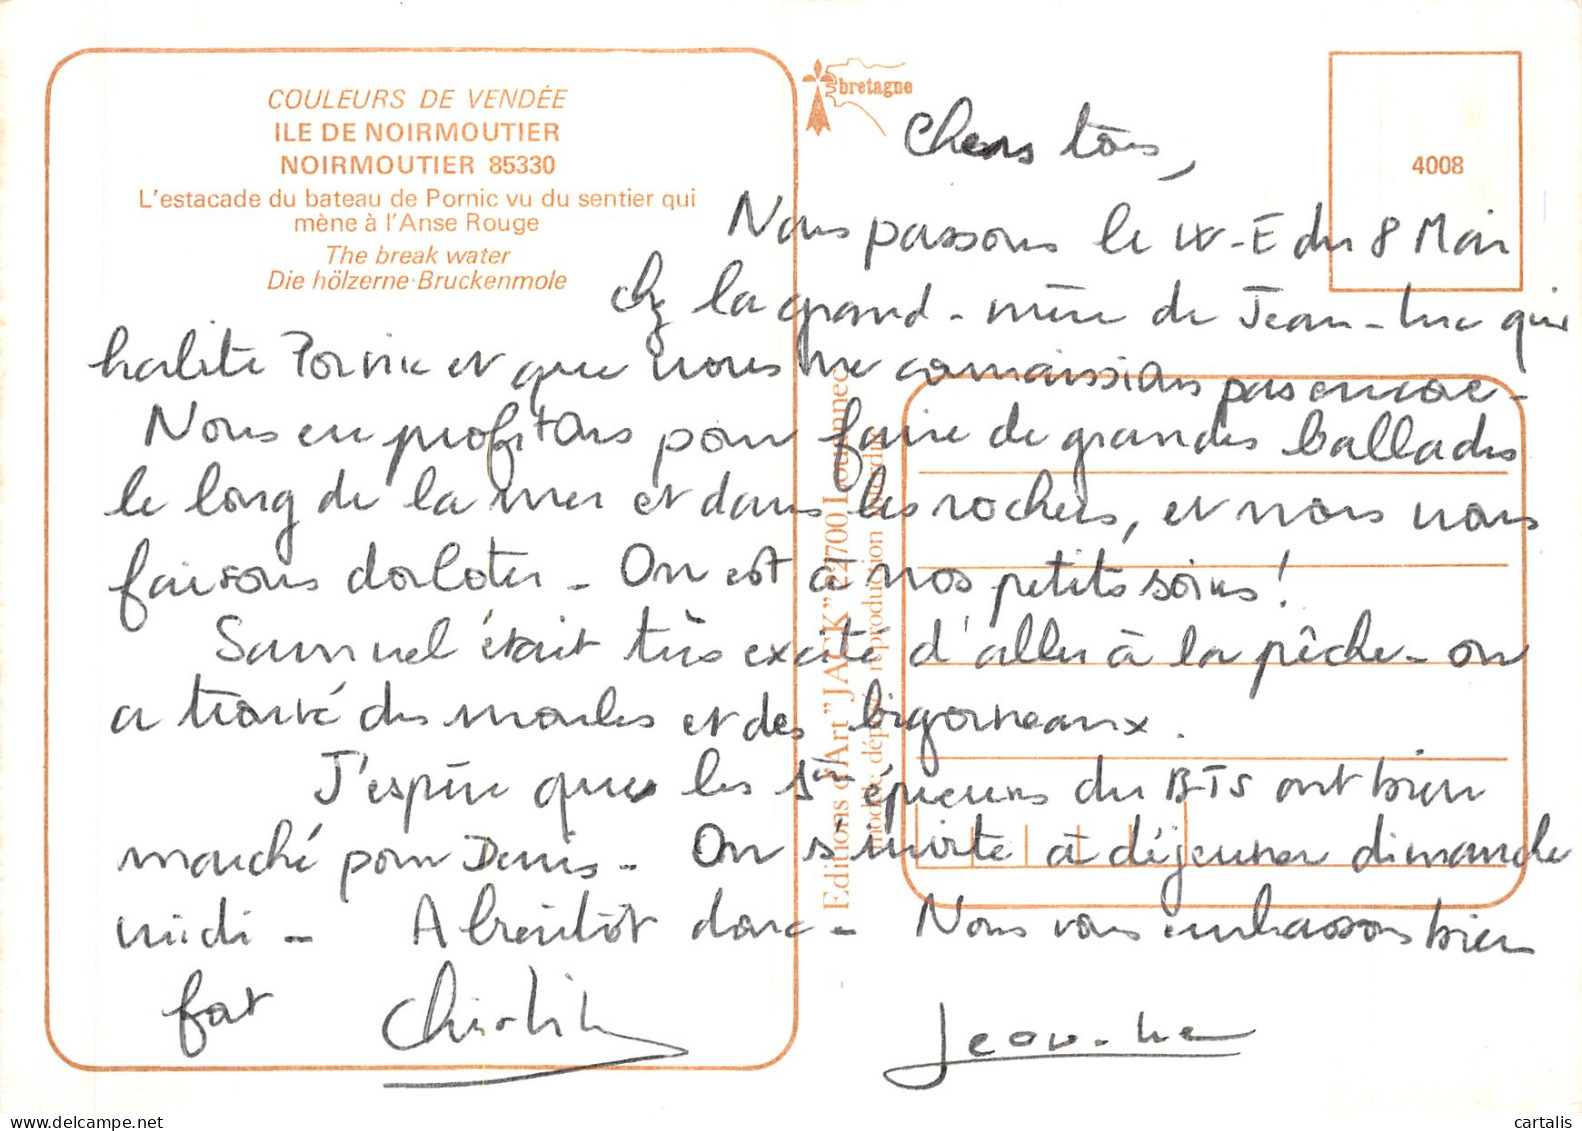 COULEURS DE VENDÉE
ILE DE NOIRMOUTIER
NOIRMOUTIER 85330
L'estacade du bateau de Pornic vu du sentier qui
mène à l'Anse Rouge
The break water
Die hölzerne Bruckenmole
bretagne
4008
Editions d'Art "JACK" 22700 Louannec
modèle déposé, reproduction interdite
Chers tous,
Nous passons le W-E du 8 Mai
chz la grand-mère de Jean-Luc qui
habite Pornic et que nous ne connaissions pas encore -
Nous en profitons pour faire de grandes ballades
le long de la mer et dans les rochers, et nous nous
faisons dorloter - On est à nos petits soins !
Samuel était très excité d'aller à la pêche - on
a trouvé des moules et des bigorneaux.
J'espère que les 1ères épreuves du BTS ont bien
marché pour Denis - On s'invite à déjeuner dimanche
midi - A bientôt donc - Nous vous embrassons bien
fort
Jean-Luc